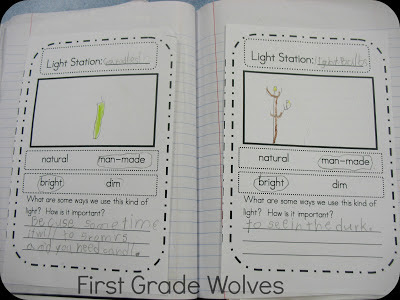 Light Station:
natural man-made
bright dim
What are some ways we use this kind of
light? How is it important?
Because somtime
and you need
Light Station:
natural man-made
bright dim
What are some ways we use this kind of
light? How is it important?
to see in the durk.
First Grade Wolves